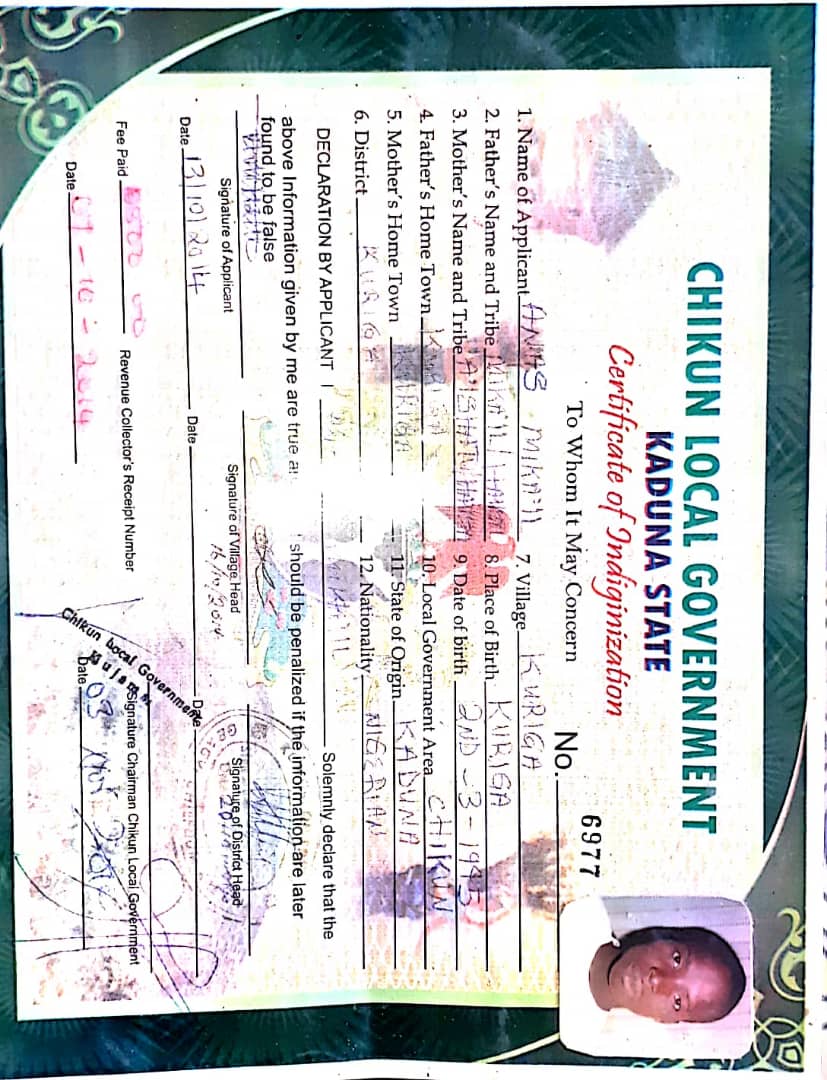 CHIKUN LOCAL GOVERNMENT
KADUNA STATE
Certificate of Indiginization
To Whom It May Concern
No. 6977
1. Name of Applicant ANAS MIKA'IL
2. Father's Name and Tribe MIKA'IL
3. Mother's Name and Tribe
4. Father's Home Town KURIGA
5. Mother's Home Town KURIGA
6. District KURIGA
7. Village KURIGA
8. Place of Birth KURIGA
9. Date of birth 2ND - 3 -
10. Local Government Area CHIKUN
11. State of Origin KADUNA
12. Nationality NIGERIAN
DECLARATION BY APPLICANT I Solemnly declare that the
above Information given by me are true should be penalized if the information are later
found to be false
Signature of Applicant
Signature of Village Head
16/10/2014
Signature of District Head
Date 13/10/2014
Date
Date
Fee Paid
Revenue Collector's Receipt Number
Signature Chairman Chikun Local Government
Chikun Local Government
Kujama
Date 07 - 10 - 2014
Date 03